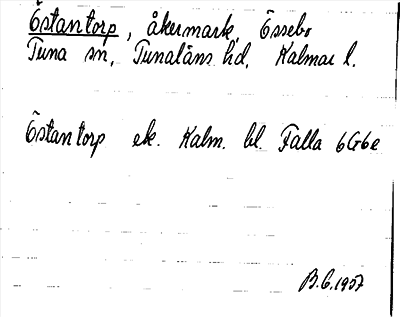 Östantorp, åkermark, Össebo
Tuna sn, Tunaläns hd, Kalmar l.
Östantorp ek. Kalm. bl. Falla 6G6e
B.G.1957